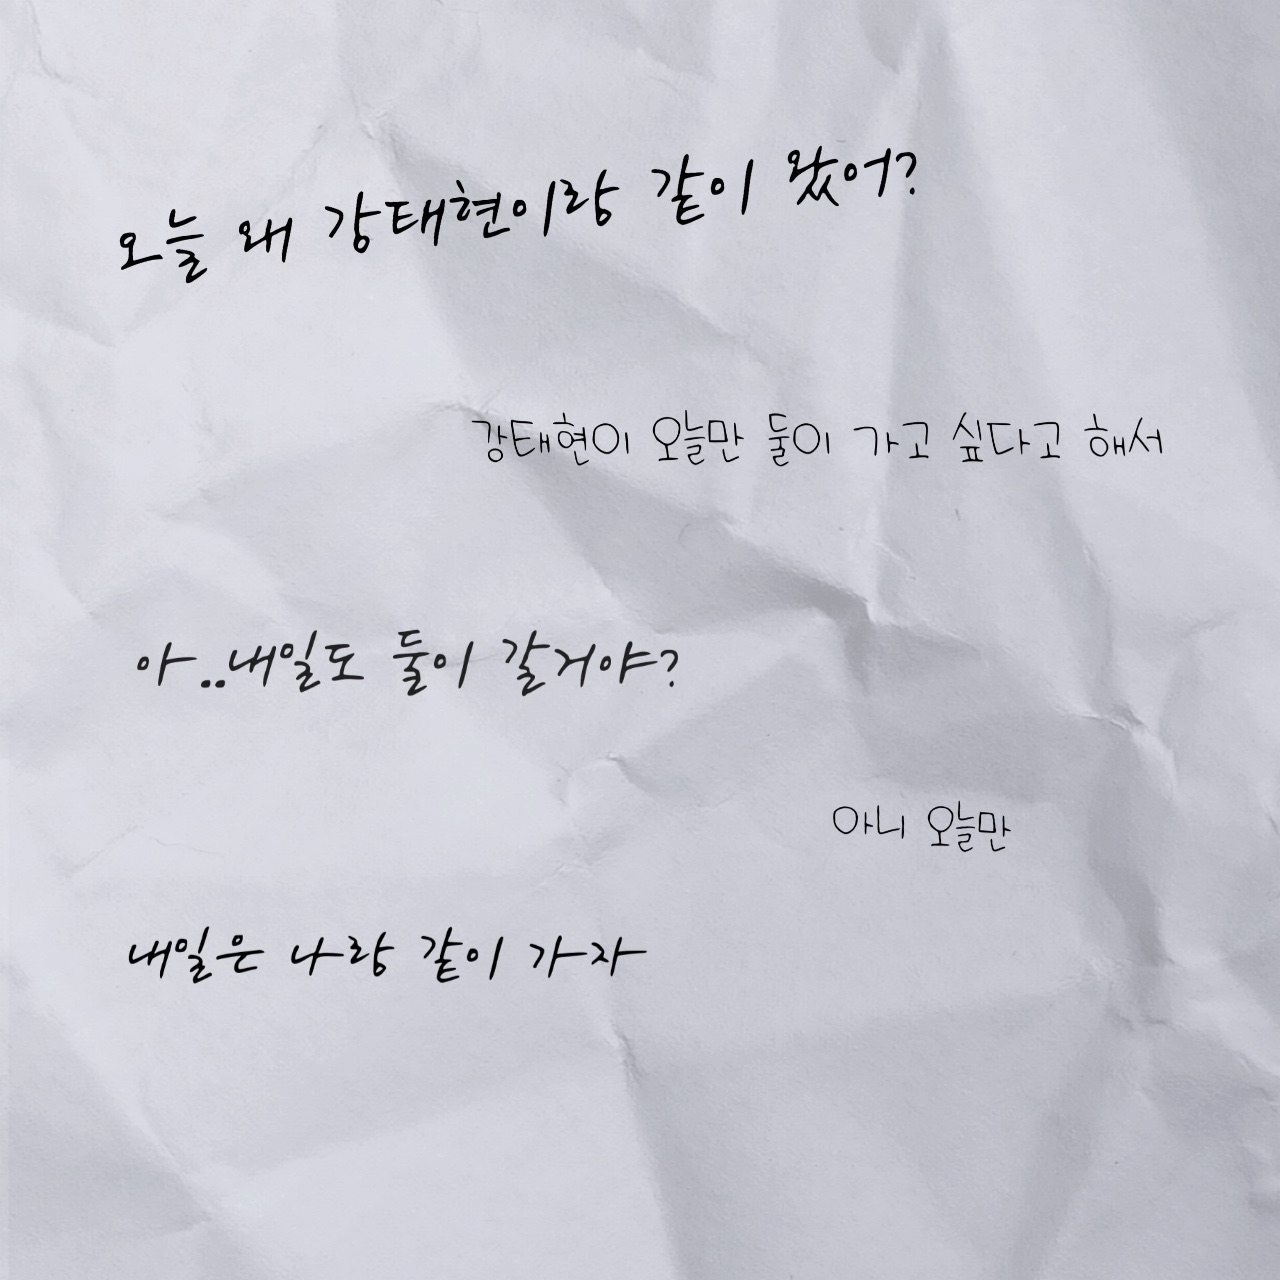 오늘 왜 강태현이랑 같이 왔어?
강태현이 오늘만 둘이 가고 싶다고 해서
아..내일도 둘이 갈거야?
아니 오늘만
내일은 나랑 같이 가자